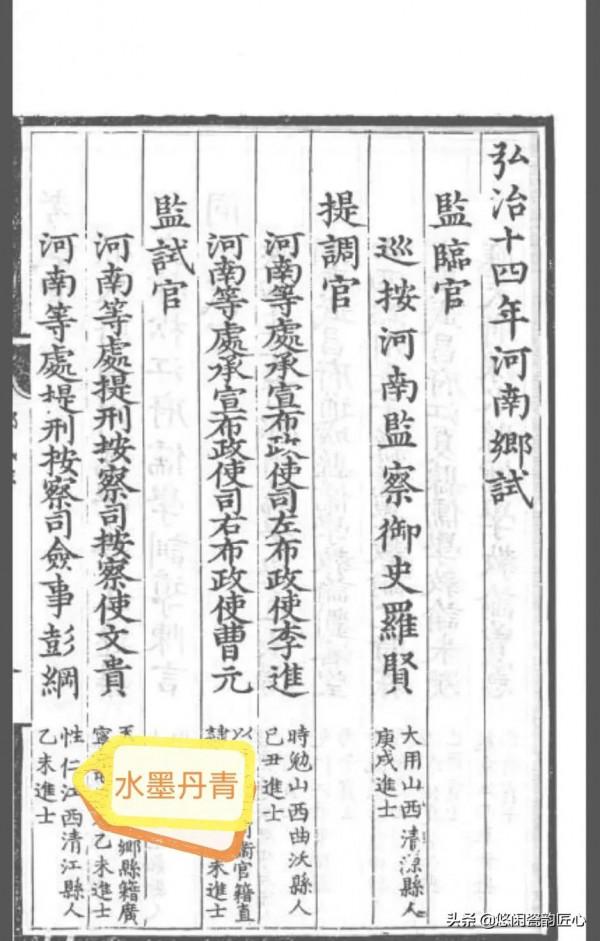 弘治十四年河南鄉試
監臨官
巡按河南監察御史羅賢
大用山西清源縣人
庚戌進士
提調官
河南等處承宣布政使司左布政使李進
時勉山西曲沃縣人
己丑進士
河南等處承宣布政使司右布政使曹元
以
衛官籍直
隸
未進士
監試官
河南等處提刑按察司按察使文貴
鄉縣籍廣
寧
乙未進士
河南等處提刑按察司僉事彭綱
性仁江西清江縣人
乙未進士
水墨丹青
头条 @悠闲瓷韵匠心